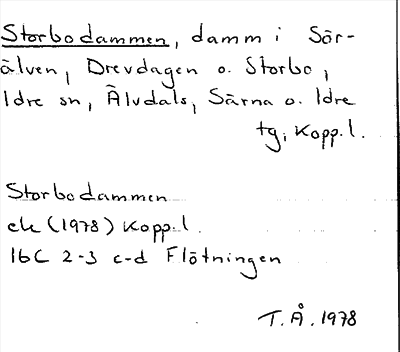 Storbodammen, damm i Sör-
älven, Drevdagen o. Storbo,
Idre sn, Älvdals, Särna o. Idre
tg, Kopp. l.
Storbodammen
ek (1978) Kopp. l.
16C 2-3 c-d Flötningen
T. Å. 1978